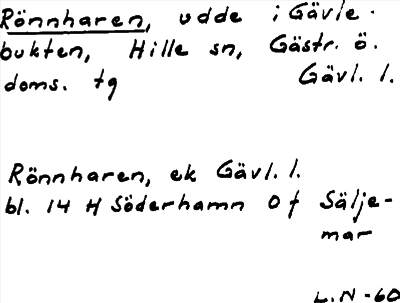 Rönnharen, udde i Gävle-
bukten, Hille sn, Gästr. ö.
doms. tg Gävl. l.
Rönnharen, ek Gävl. l.
bl. 14 H Söderhamn O f Sälje-
mar
L.N -60